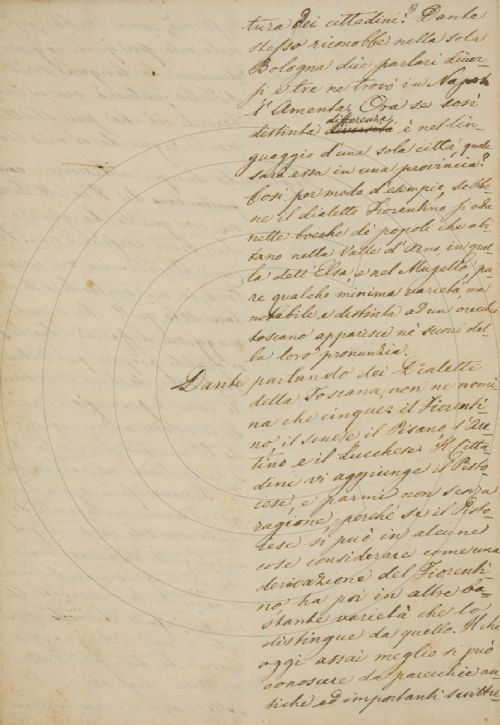 tura dei cittadini? Dante
stesso riconobbe nella sola
Bologna due parlari diver-
si e tre ne trovò in Napoli
l'Amenta. Ora se così
differenza
distinta diversità è nel lin-
guaggio d'una sola città, quale
sarà essa in una provincia?
Così per modo d'esempio, sebbe-
ne il dialetto Fiorentino si oda
nelle bocche de' popoli che abi-
tano nella Valle d'Arno, in quel-
la dell'Elsa, e nel Mugello, pu-
re qualche minima varietà, ma
notabile e distinta ad un orecchio
toscano apparisce nè suoni del-
la loro pronunzia.
Dante parlando dei Dialetti
della Toscana, non ne nomi-
na che cinque: il Fiorenti-
no, il Senese il Pisano l'Are-
tino e il Lucchese. Il Citta-
dini vi aggiunge il Pisto-
iese, e parmi non senza
ragione: perchè se il Pisto-
iese si può in alcune
cose considerare come una
derivazione del Fiorenti-
no ha poi in altre ba-
stante varietà che lo
distingue da quello. Il che
oggi assai meglio si può
conoscere da parecchie an-
tiche ed importanti scrittu-